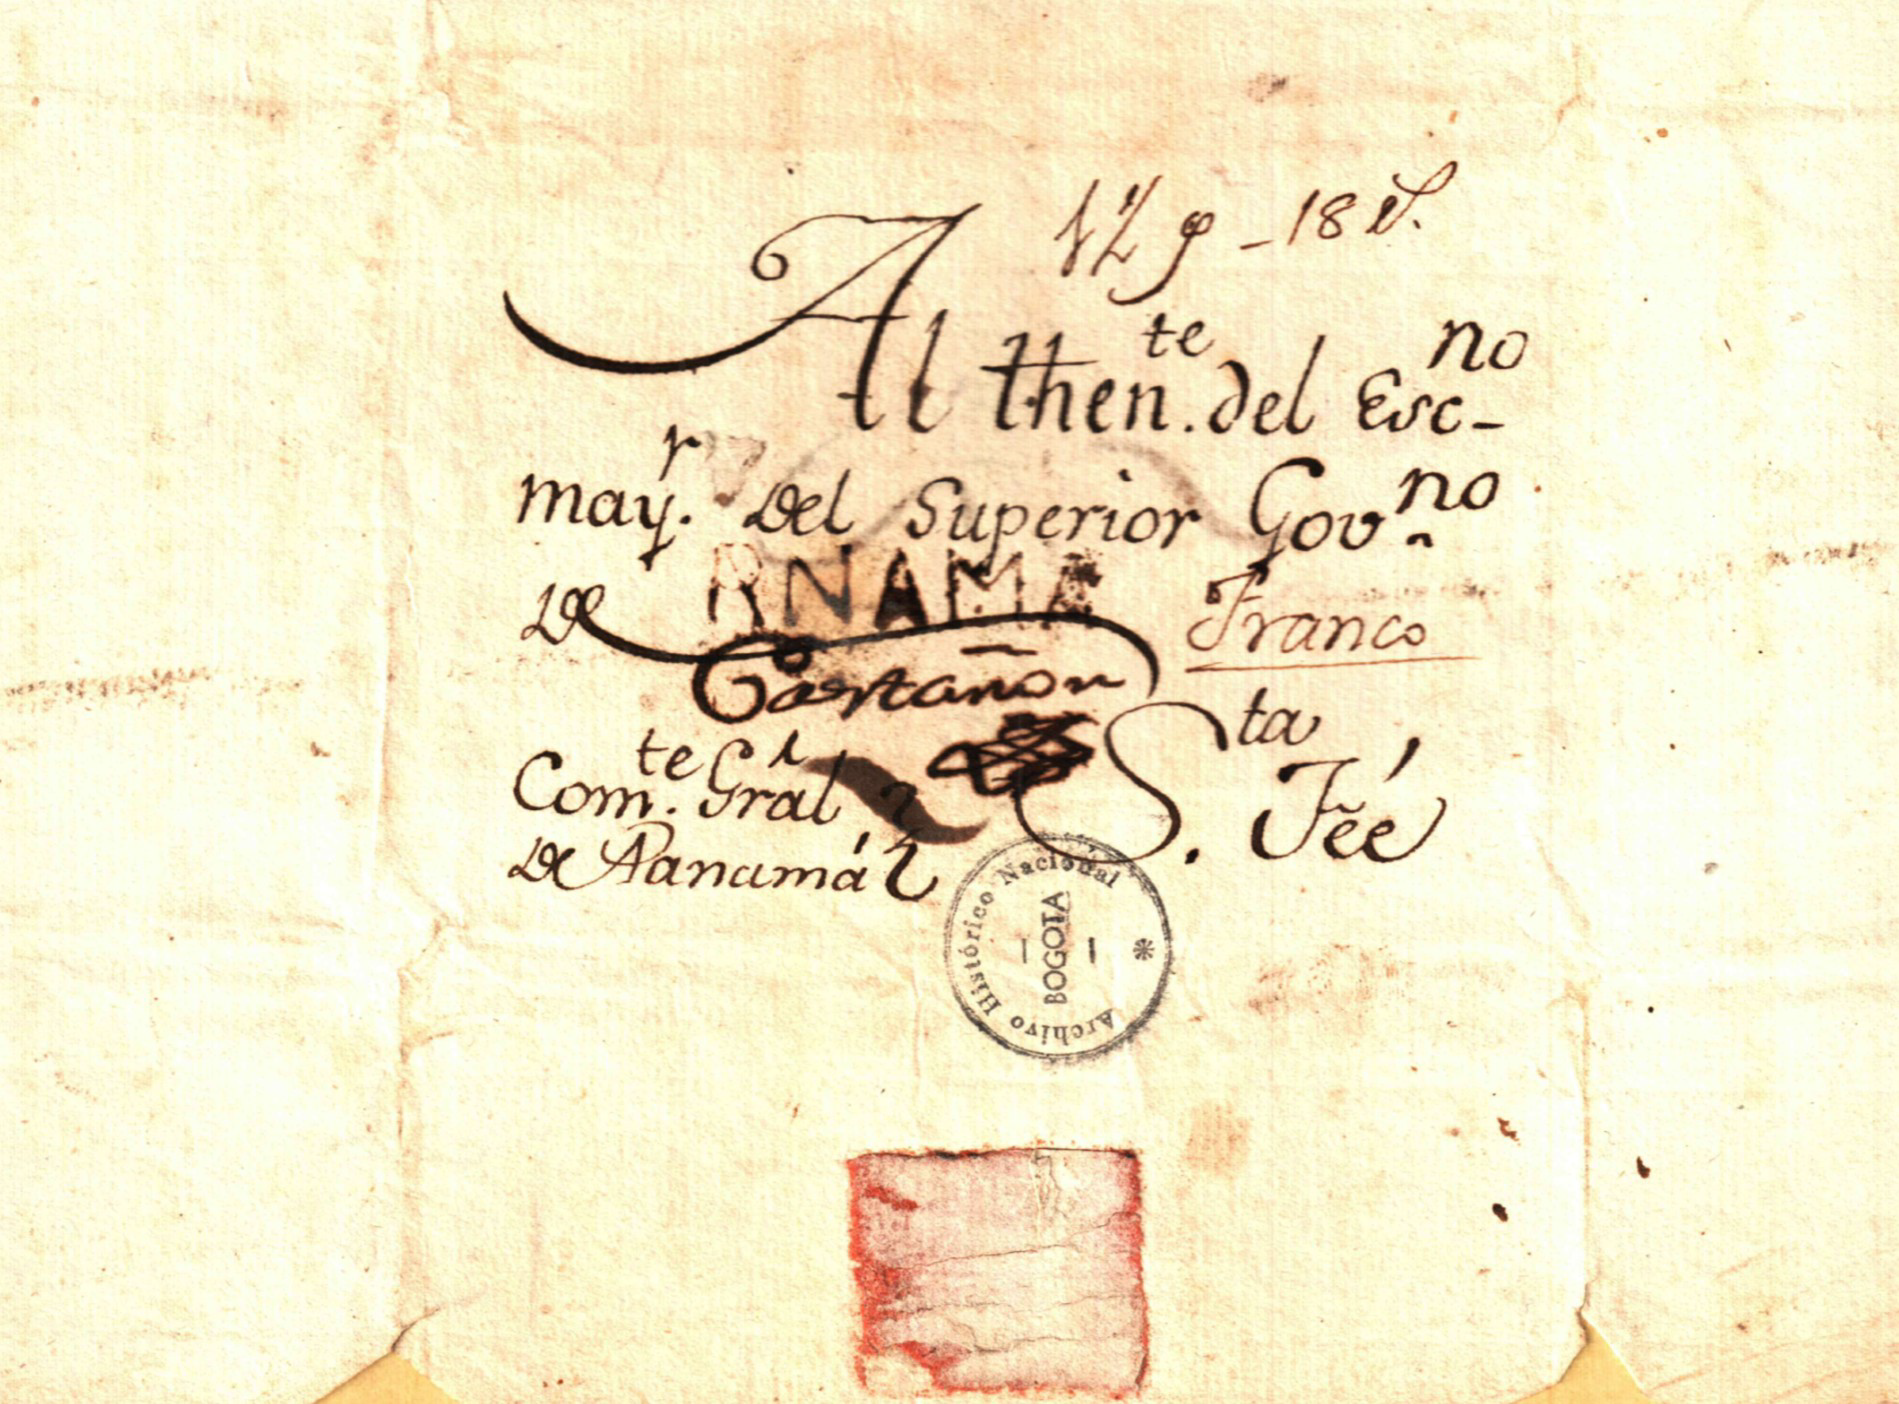 12 p - 18 rs.
Al then.te del Esc-no
may.r del Superior Gov.no
de
PANAMA
Franco
Castañon
Com.te Gral
de Panamá
S.ta Fée
Archivo Histórico Nacional
BOGOTA